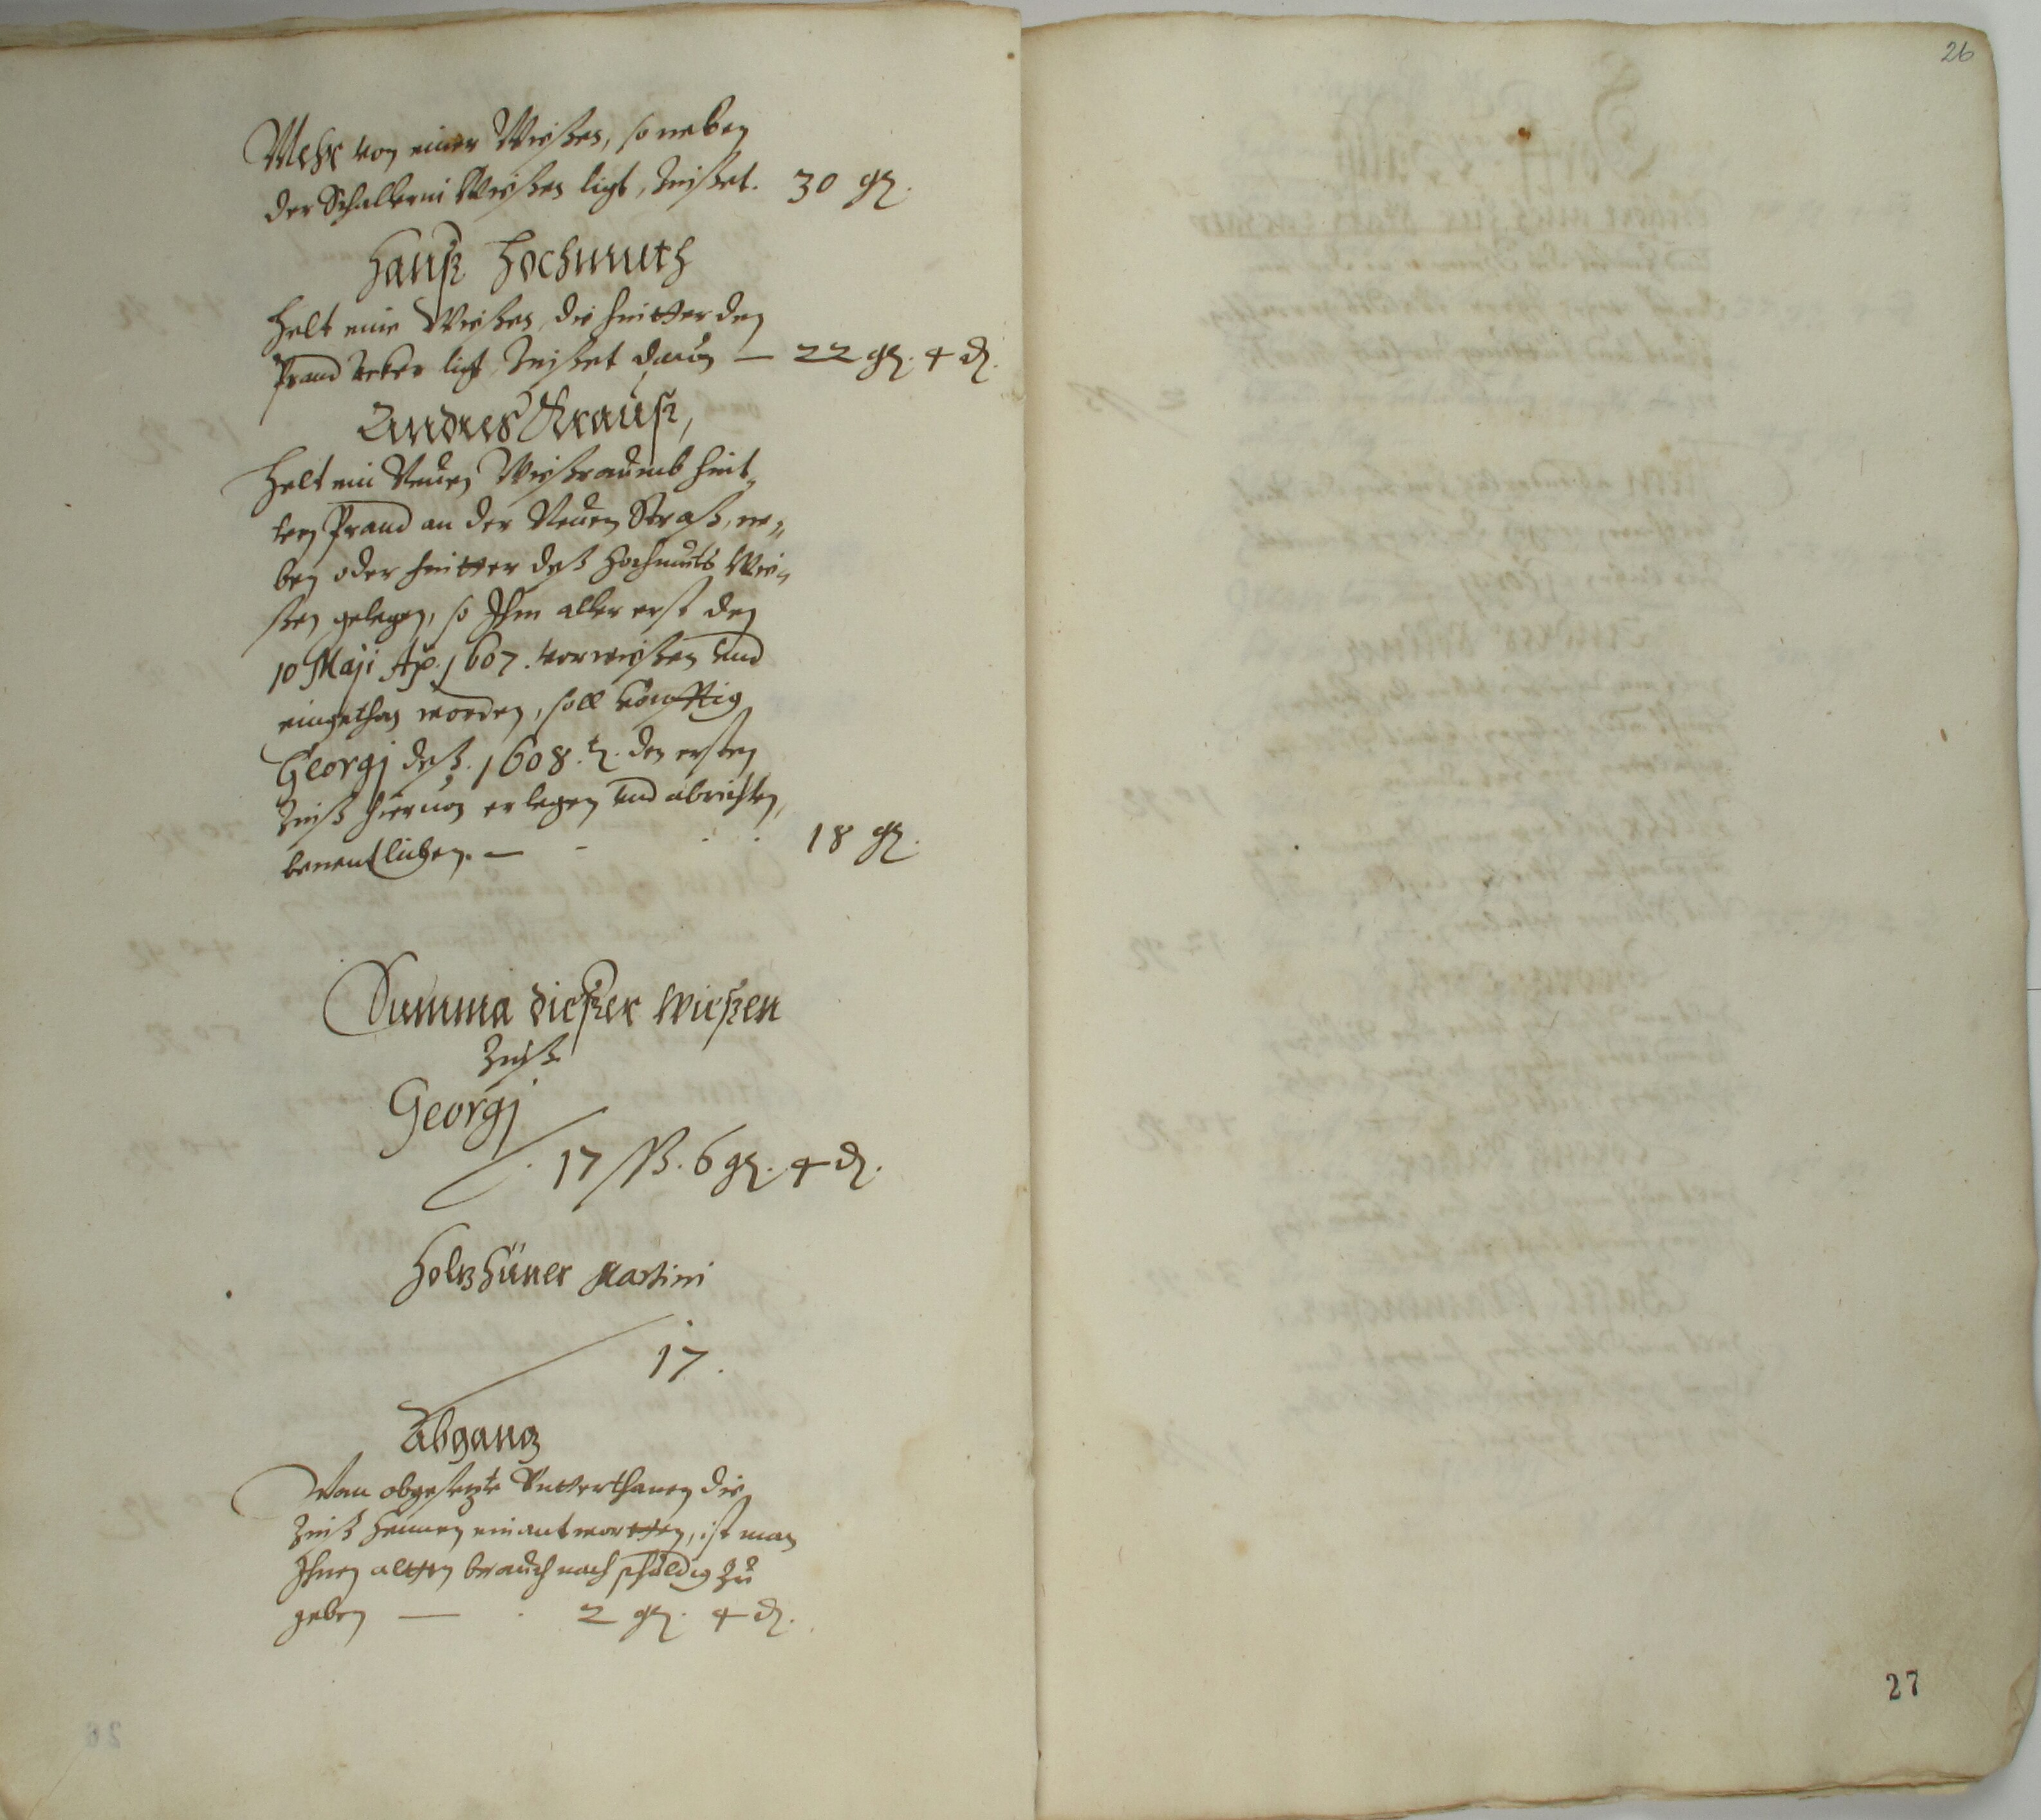 Mehr von einer Wießen, so neben
der Schallerin Wießen ligt, Zinßet. 30 gr.
Hanß Hochmuth
Helt eine Wießen, die hintter den
Prand Acker ligt, Zinßet dauon — 22 gr. 4 d.
Andres Krauß,
Helt ein Neuen Wießraumb hint„
tern Prand an der Neuen Straß, ne„
ben oder hintter deß Hochmuts Wie„
ßen gelegen, so Ihm aller erst den
10 Maji Ao. 1607. vorwießen vnd
eingethan worden, soll könfftig
Georgj deß. 1608.t. den ersten
Zinß hieruon erlegen vnd abrichten,
benentlichen. — - . . 18 gr.
Summa dießer Wießen
Zinß.
Georgj
17 ßß. 6 gr. 4 d.
Holtzhüner Martini
17.
Abgang
Wan obgesetzte Vntterthanen die
Zinß Hennen einantwortten, ist man
Ihnen altten brauch nach schuldig zu
geben — . 2 gr. 4 d.
26
27